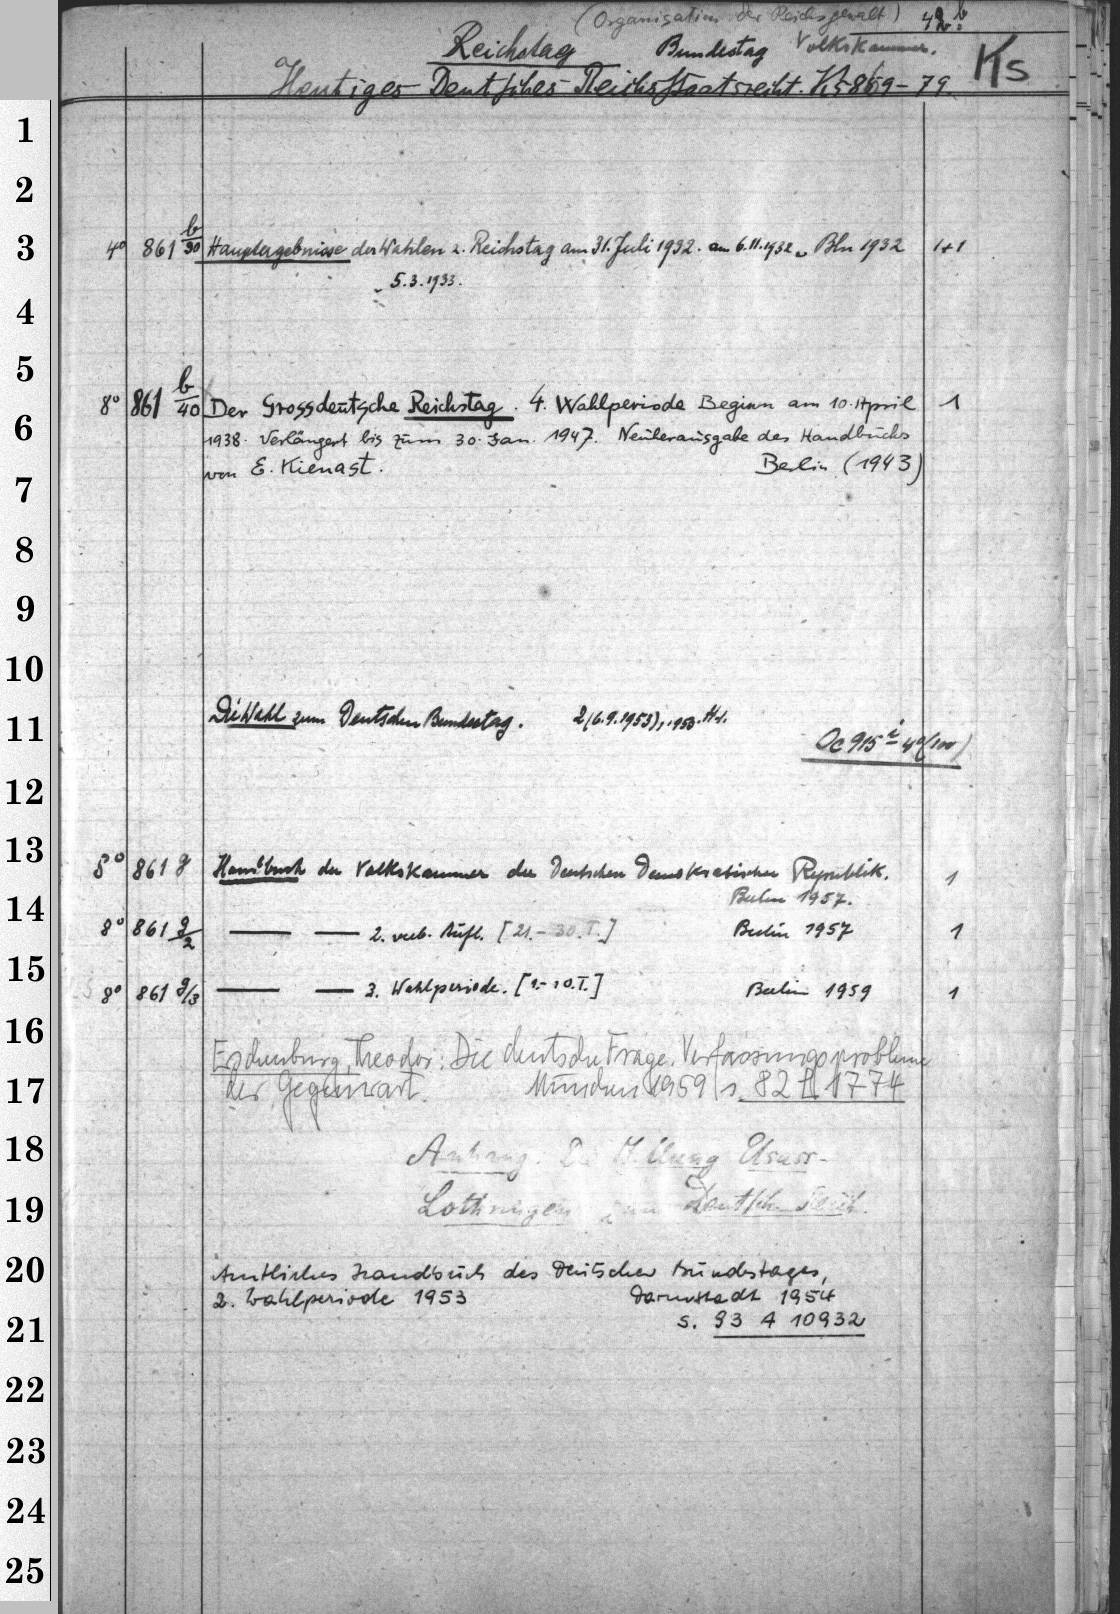 (Organisation der Reichsgewalt) 42b.
Reichstag Bundestag Volkskammer.
Heutiges Deutsches Reichsstaatsrecht. Ks 859-79. Ks
1
2
3 4° 861 b/30 Hauptergebnisse der Wahlen z. Reichstag am 31. Juli 1932. am 6.11.1932 u Bln 1932 1+1
„ 5.3.1933.
4
5
8° 861 b/40 Der Grossdeutsche Reichstag. 4. Wahlperiode Beginn am 10. April 1
6 1938. Verlängert bis zum 30. Jan. 1947. Neuherausgabe des Handbuchs
von E. Kienast. Berlin (1943)
7
8
9
10
11 Die Wahl zum Deutschen Bundestag. 2 (6.9.1953), 1953.
Oc 915 i - 4°(100)
12
13 8° 861 g Handbuch der Volkskammer der Deutschen Demokratischen Republik. 1
14 Berlin 1957.
8° 861 g/2 — — 2. verb. Aufl. [21.-30.T.] Berlin 1957 1
15 8° 861 g/3 — — 3. Wahlperiode. [1.-10.T.] Berlin 1959 1
16 Eschenburg, Theodor: Die deutsche Frage. Verfassungsprobleme
17 der Gegenwart. München 1959 s. 82 A 1774
18 Anhang. Die Stellung Elsass-
19 Lothringens zum Deutschen Reich.
20 Amtliches Handbuch des Deutschen Bundestages,
2. Wahlperiode 1953 Darmstadt 1954
21 s. 93 A 10932
22
23
24
25